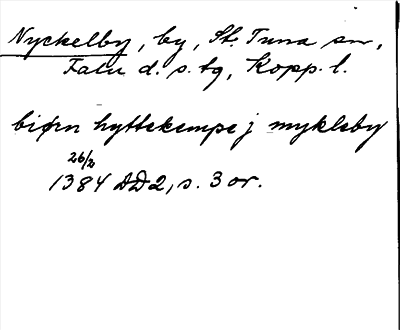 Nyckelby, by, St. Tuna sn,
Falu d. s. tg, Kopp. l.
biørn hyttekempe j mykleby
26/2
1384 DD2, s. 3 or.